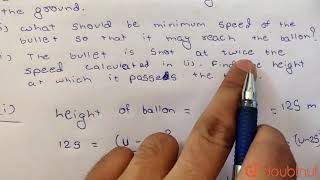 the ground.
i) what should be minimum speed of the
bullet so that it may reach the ballon?
) The bullet is shot at twice the
speed calculated in (i). Find height
at which it passes the
(i) height of ballon = = 125 m
125 = (u - (u-25
doubtnut